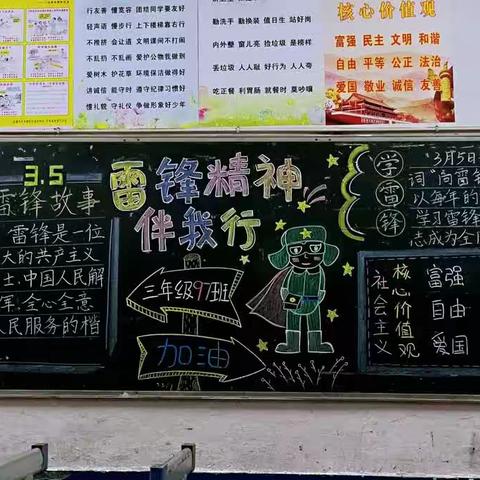 行友善 懂宽容 团结同学要友好
轻声语 慢步行 上下楼梯靠右行
不拥挤 会让道 文明课间不打闹
不乱扔 不乱画 爱护公物我能做
爱树木 护花草 环境保洁做得好
讲诚信 能守时 遵守纪律习惯好
懂礼貌 守礼仪 争做形象好少年
勤洗手 勤换装 值日生 站好岗
内外整 窗儿亮 捡垃圾 是榜样
丢垃圾 人人耻 好行为 人人夸
吃正餐 利胃肠 就餐时 莫吵嚷
核心价值观
富强 民主 文明 和谐
自由 平等 公正 法治
爱国 敬业 诚信 友善
3.5
雷锋故事
雷锋是一位
大的共产主义
士,中国人民解
军,全心全意
人民服务的楷
雷锋精神
伴我行
三年级97班
加油
学雷锋
3月5日
词"向雷锋
以每年的
学习雷锋
志成为全
社会主义
核心价值观
富强
自由
爱国